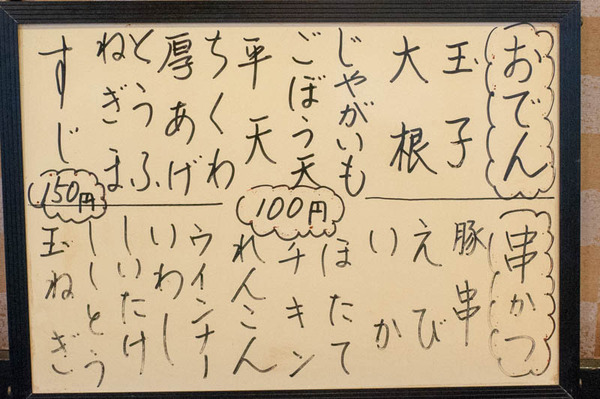 おでん
玉子
大根
じゃがいも
ごぼう天
平天
ちくわ
厚あげ
とうふ
ねぎま
すじ
150円
100円
串かつ
豚串
えび
いか
ほたて
チキン
れんこん
ウインナー
いわし
しいたけ
ししとう
玉ねぎ